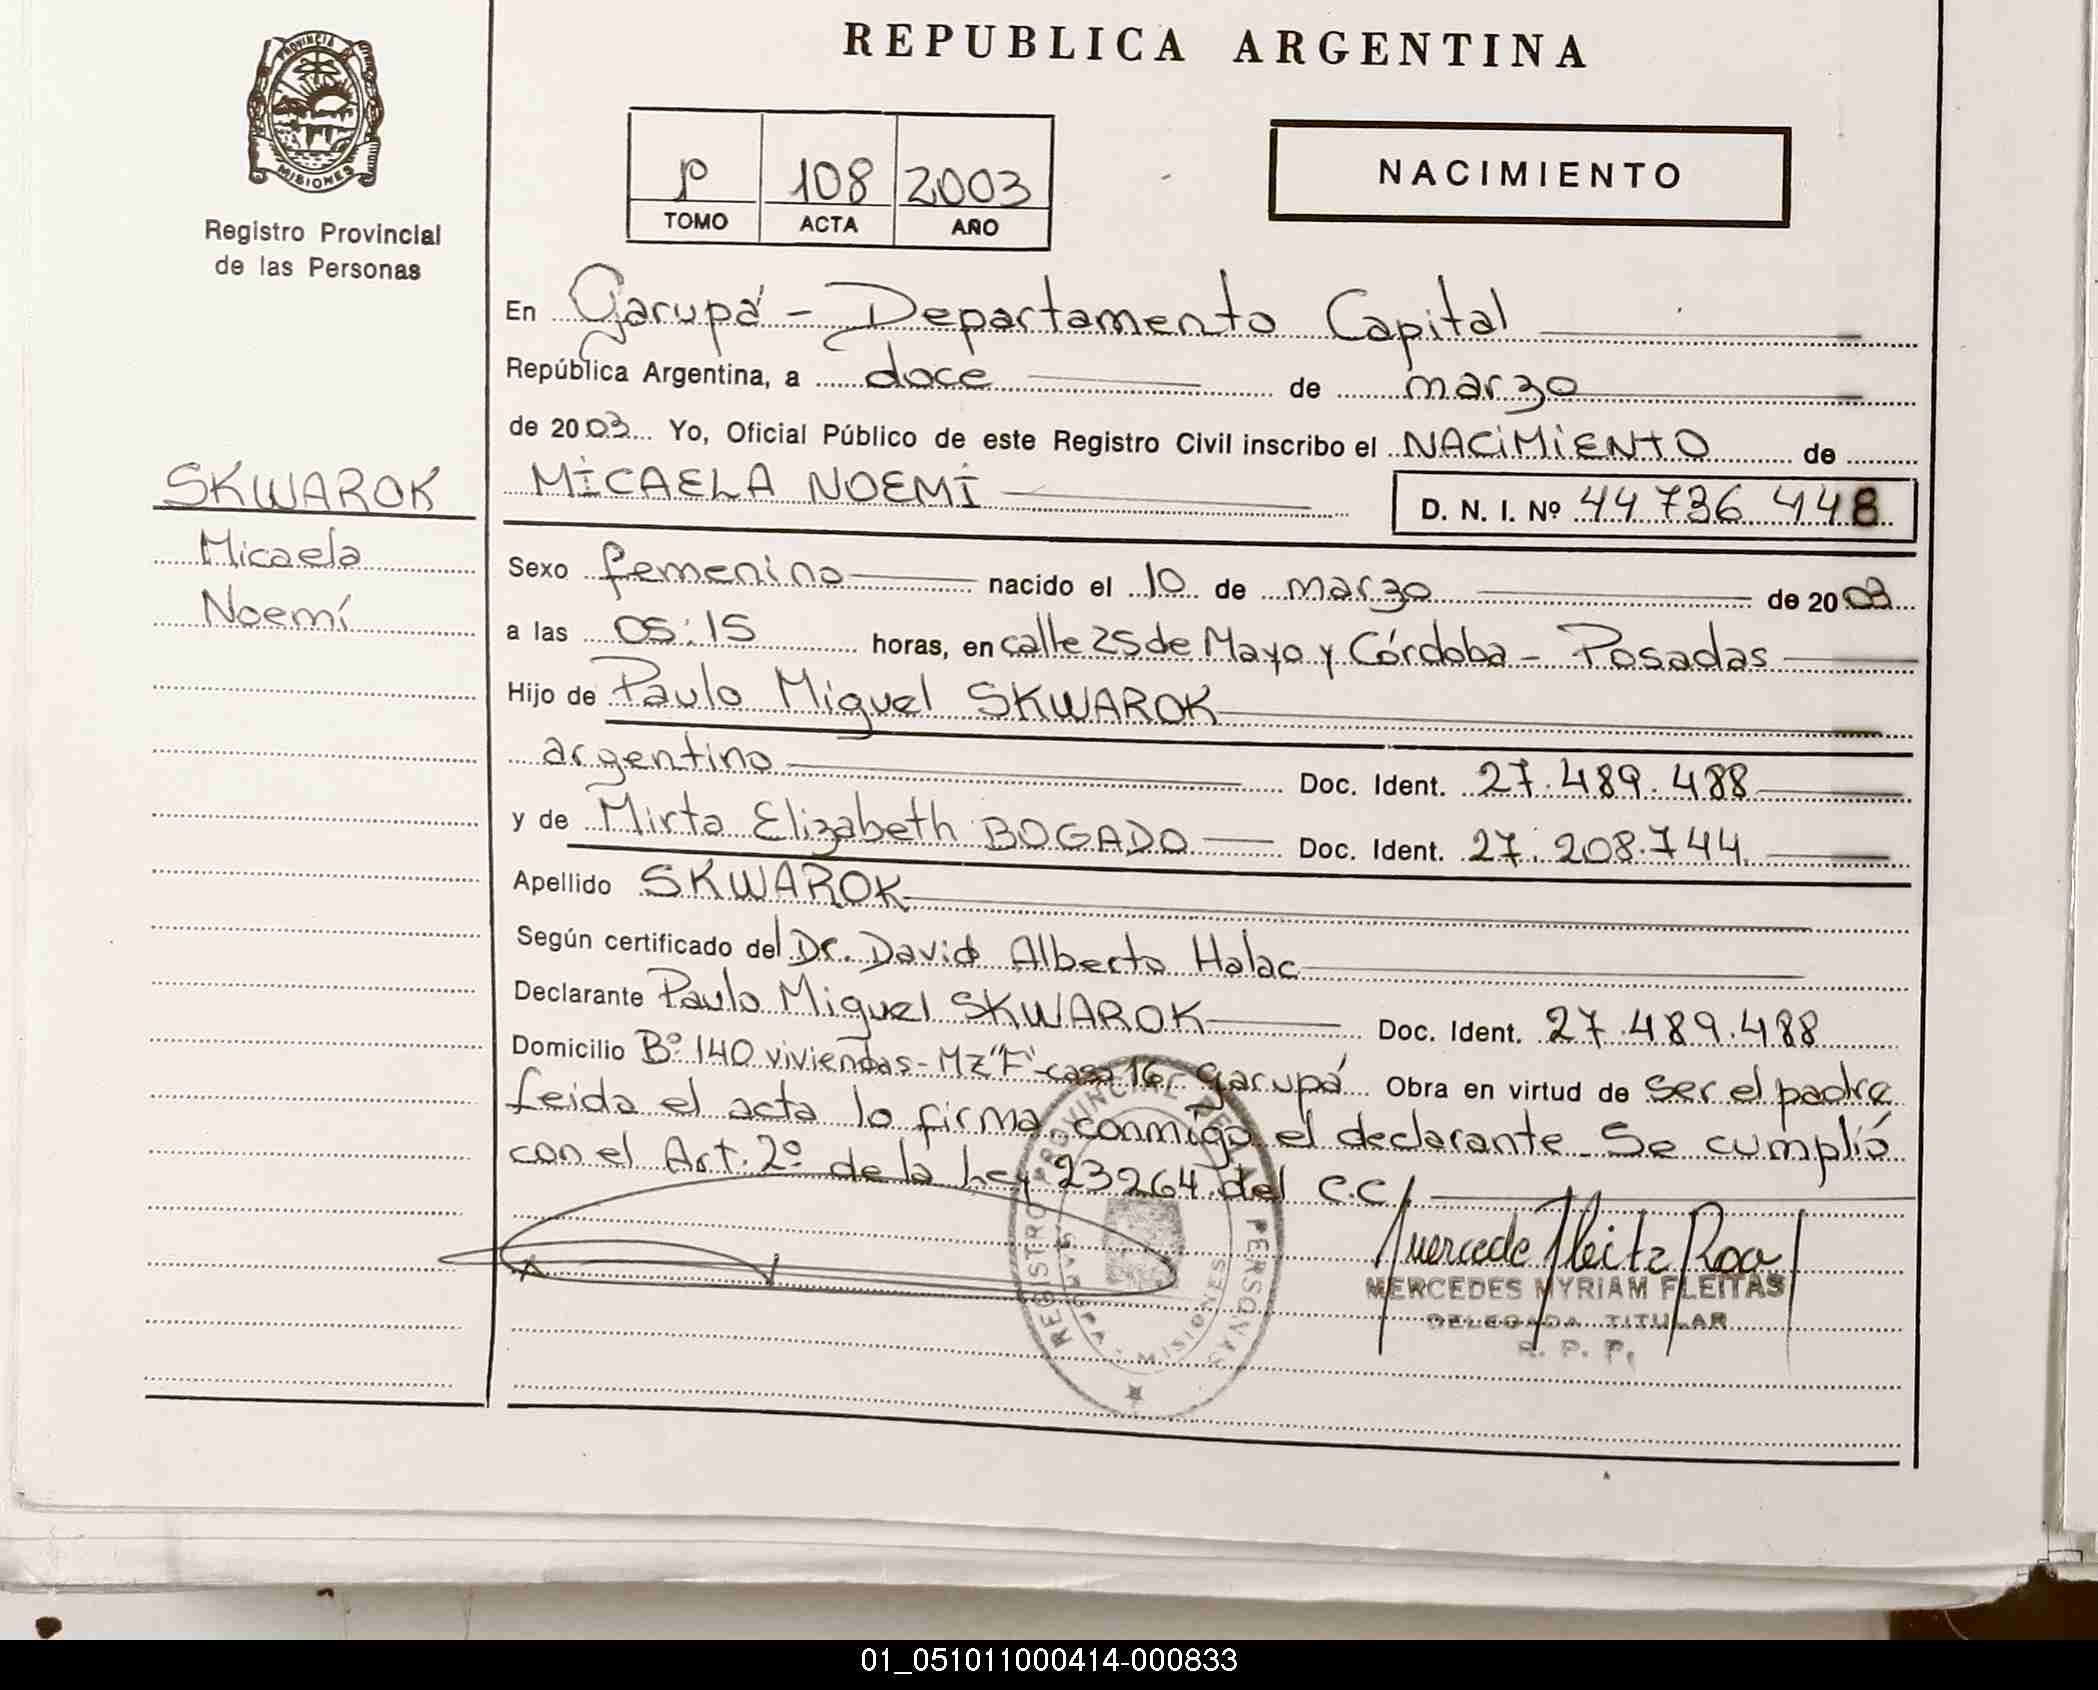 REPUBLICA ARGENTINA
PROVINCIA
MISIONES
Registro Provincial
de las Personas
P 108 2003
TOMO ACTA AÑO
NACIMIENTO
En Garupá - Departamento Capital
República Argentina, a doce de marzo
de 2003 Yo, Oficial Público de este Registro Civil inscribo el NACIMIENTO de
SKWAROK
Micaela
Noemí
MICAELA NOEMÍ D. N. I. Nº 44 736 448
Sexo femenino nacido el 10 de marzo de 2003
a las 05:15 horas, en calle 25 de Mayo y Córdoba - Posadas
Hijo de Paulo Miguel SKWAROK
argentino Doc. Ident. 27.489.488
y de Mirta Elizabeth BOGADO Doc. Ident. 27.208.744
Apellido SKWAROK
Según certificado del Dr. David Alberto Halac
Declarante Paulo Miguel SKWAROK Doc. Ident. 27.489.488
Domicilio Bº 140 viviendas - MZ "F" - casa 16 - Garupá Obra en virtud de ser el padre
Leida el acta lo firma conmigo el declarante. Se cumplió
con el Art. 2º de la Ley 23264 del C.C.
REGISTRO PROVINCIAL DE LAS PERSONAS
MISIONES
MERCEDES MYRIAM FLEITAS
DELEGADA TITULAR
R. P. P.
01_051011000414-000833